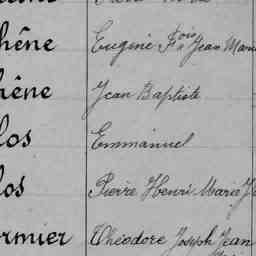 hêne Eugène Fois Jean Marie
hêne Jean Baptiste
los Emmanuel
los Pierre Henri Marie J
ormier Théodore Joseph Jean